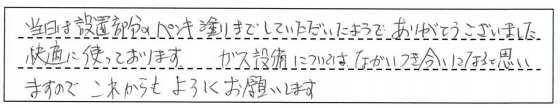 当日は設置部分のペンキ塗りまでしていただいたようで ありがとうございました
快適に使っております ガス設備についてはながいつき合いになると思い
ますので これからも よろしくお願いします